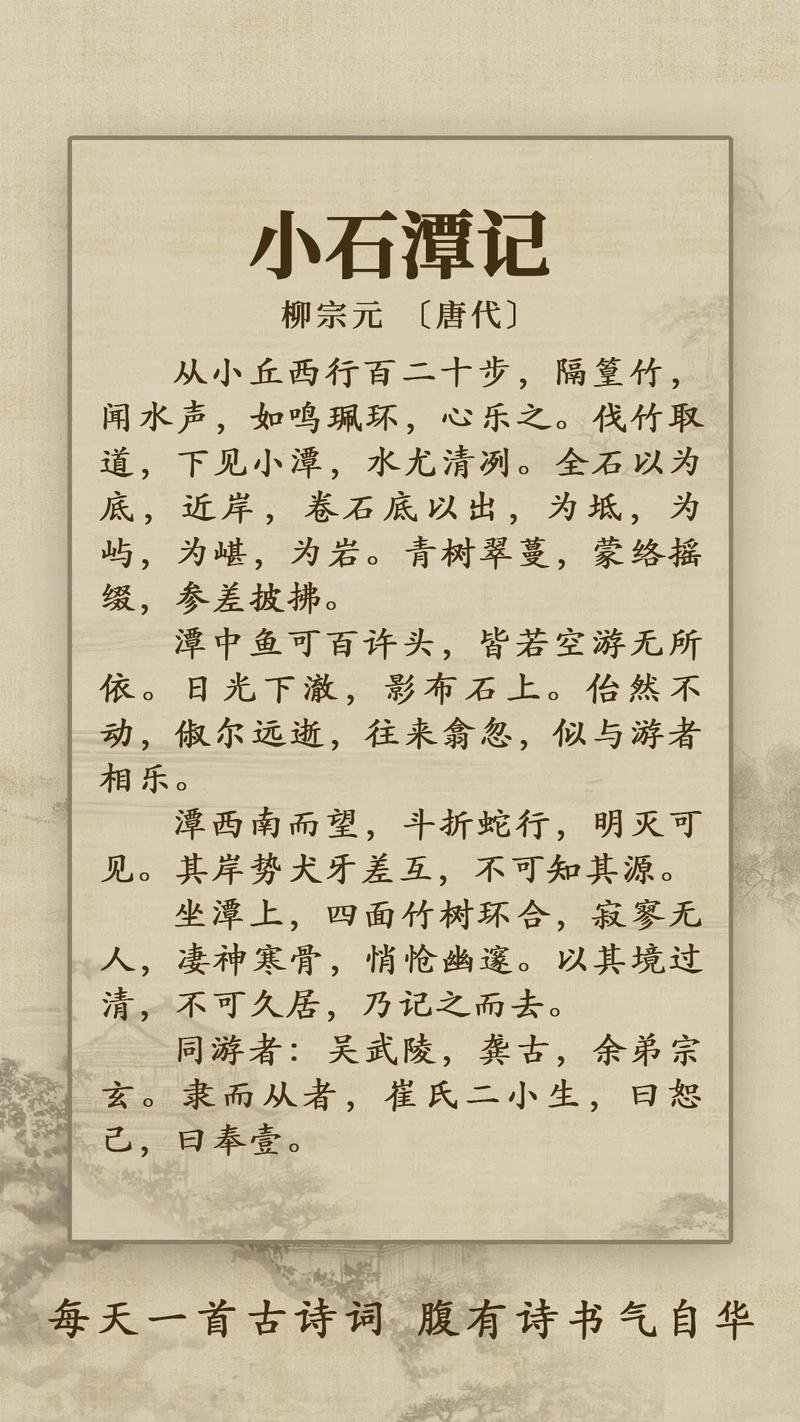 小石潭记
柳宗元 〔唐代〕
从小丘西行百二十步，隔篁竹，
闻水声，如鸣珮环，心乐之。伐竹取
道，下见小潭，水尤清冽。全石以为
底，近岸，卷石底以出，为坻，为
屿，为嵁，为岩。青树翠蔓，蒙络摇
缀，参差披拂。
潭中鱼可百许头，皆若空游无所
依。日光下澈，影布石上。佁然不
动，俶尔远逝，往来翕忽，似与游者
相乐。
潭西南而望，斗折蛇行，明灭可
见。其岸势犬牙差互，不可知其源。
坐潭上，四面竹树环合，寂寥无
人，凄神寒骨，悄怆幽邃。以其境过
清，不可久居，乃记之而去。
同游者：吴武陵，龚古，余弟宗
玄。隶而从者，崔氏二小生，曰恕
己，曰奉壹。
每天一首古诗词 腹有诗书气自华